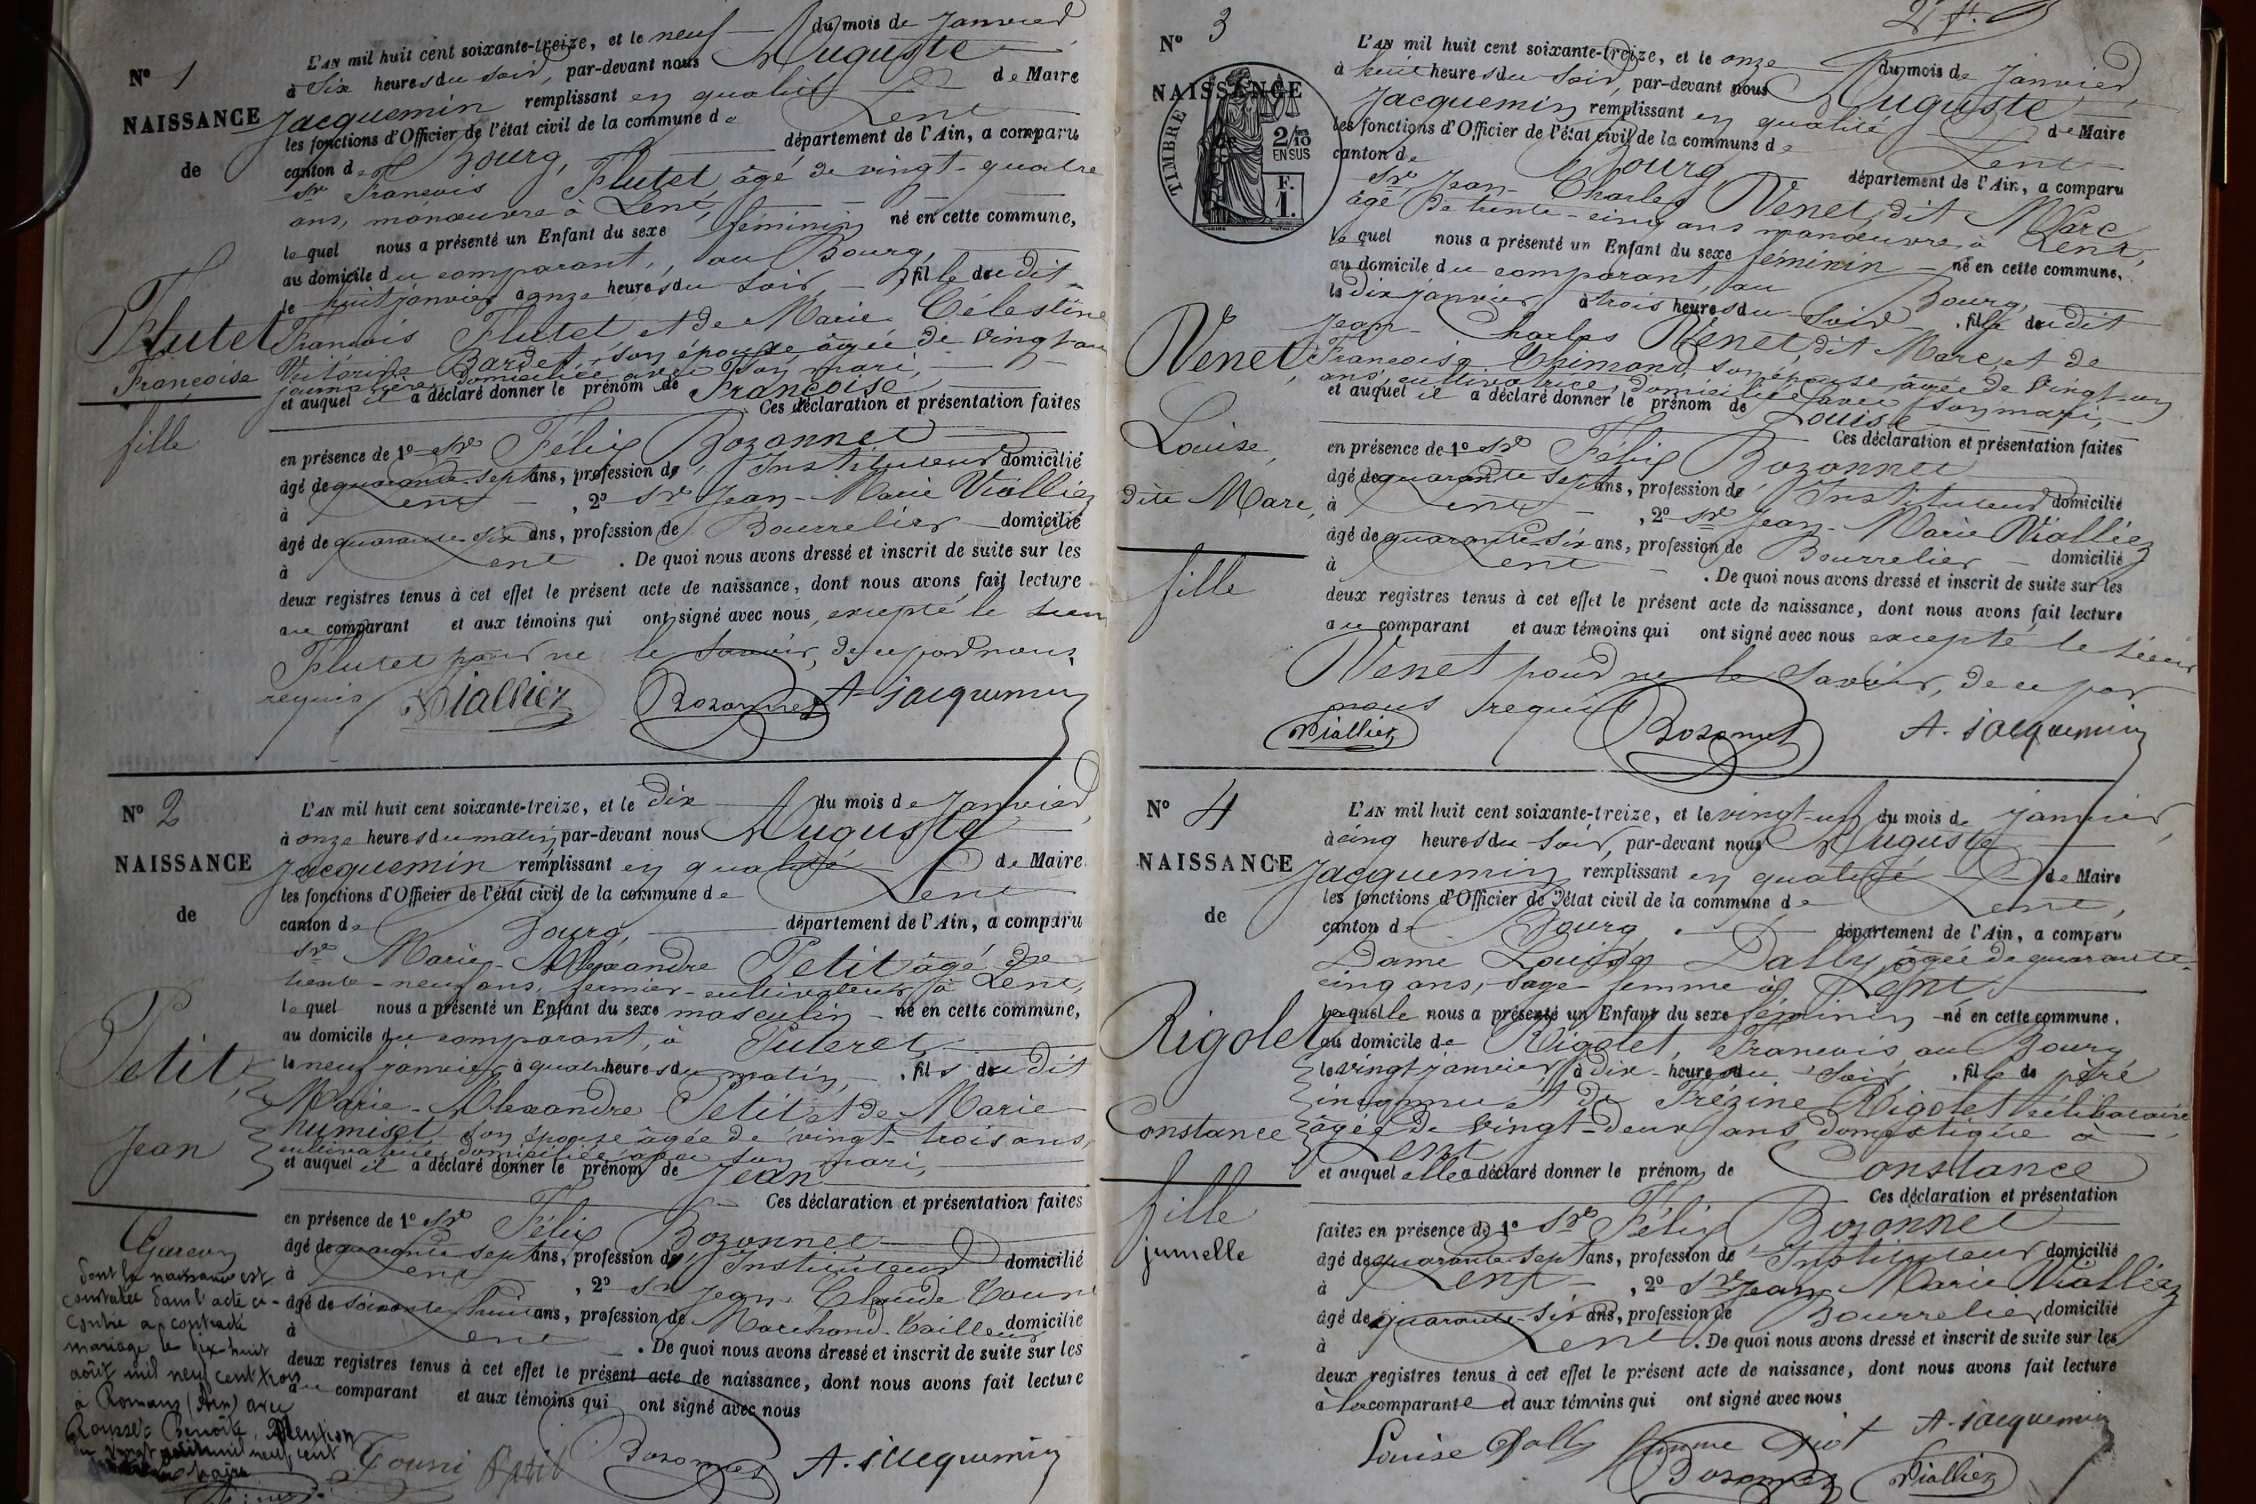 N° 1
NAISSANCE
de
Flutet
Françoise
fille
L'AN mil huit cent soixante-treize, et le neuf du mois de Janvier
à Six heures du soir, par-devant nous Auguste
Jacquemin remplissant en qualité de Maire
les fonctions d'Officier de l'état civil de la commune de Lent
canton de Bourg, département de l'Ain, a comparu
Sr François Flutet, âgé de vingt-quatre
ans, manœuvre à Lent,
lequel nous a présenté un Enfant du sexe féminin né en cette commune,
au domicile du comparant, au Bourg,
le huit janvier à onze heures du soir, fille dudit
François Flutet et de Marie Célestine
Bardet, son épouse âgée de vingt-un
journalière domiciliée avec son mari,
et auquel il a déclaré donner le prénom de Françoise
Ces déclaration et présentation faites
en présence de 1° Sr Félix Bozonnet
âgé de quarante-sept ans, profession de Instituteur domicilié
à Lent, 2° Sr Jean-Marie Viallier
âgé de quarante-six ans, profession de Bourrelier domicilié
à Lent. De quoi nous avons dressé et inscrit de suite sur les
deux registres tenus à cet effet le présent acte de naissance, dont nous avons fait lecture
au comparant et aux témoins qui ont signé avec nous, excepté le sieur
Flutet pour ne le savoir, de ce par nous
requis
Viallier Bozonnet A. Jacquemin
N° 2
NAISSANCE
de
Petit,
Jean
Garçon
dont la naissance est
constatée dans l'acte ci-
contre a contracté
mariage le dix-huit
août mil neuf cent trois
à Romans (Ain) avec
Rousset Benoîte. Mention
L'AN mil huit cent soixante-treize, et le dix du mois de Janvier,
à onze heures du matin, par-devant nous Auguste
Jacquemin remplissant en qualité de Maire
les fonctions d'Officier de l'état civil de la commune de Lent
canton de Bourg, département de l'Ain, a comparu
Sr Marie-Alexandre Petit âgé de
trente-neuf ans, fermier-cultivateur à Lent,
lequel nous a présenté un Enfant du sexe masculin né en cette commune,
au domicile du comparant, à
le neuf janvier à quatre heures du matin, fils dudit
Marie-Alexandre Petit et de Marie
humiset son épouse âgée de vingt-trois ans,
domiciliée avec son mari,
et auquel il a déclaré donner le prénom de Jean
Ces déclaration et présentation faites
en présence de 1° Sr Félix Bozonnet
âgé de quarante-sept ans, profession de Instituteur domicilié
à Lent, 2° Sr Jean-Claude
âgé de soixante-huit ans, profession de Marchand-Tailleur domicilié
à Lent. De quoi nous avons dressé et inscrit de suite sur les
deux registres tenus à cet effet le présent acte de naissance, dont nous avons fait lecture
au comparant et aux témoins qui ont signé avec nous
Petit Bozonnet A. Jacquemin
N° 3
NAISSANCE
TIMBRE
2/10 EN SUS
F. 1.
Venet,
Louise,
dite Marc,
fille
L'AN mil huit cent soixante-treize, et le onze du mois de Janvier,
à huit heures du soir, par-devant nous Auguste
Jacquemin remplissant en qualité de Maire
les fonctions d'Officier de l'état civil de la commune de Lent
canton de Bourg département de l'Ain, a comparu
Sr Jean-Charles Venet, dit Marc,
âgé de trente-cinq ans manœuvre à Lent,
lequel nous a présenté un Enfant du sexe féminin né en cette commune,
au domicile du comparant, au Bourg,
le dix janvier à trois heures du soir fille dudit
Jean-Charles Venet, dit Marc, et de
Françoise son épouse âgée de vingt-un
ans, cultivatrice, domiciliée avec son mari,
et auquel il a déclaré donner le prénom de Louise
Ces déclaration et présentation faites
en présence de 1° Sr Félix Bozonnet
âgé de quarante-sept ans, profession de Instituteur domicilié
à Lent, 2° Sr Jean-Marie Viallier
âgé de quarante-six ans, profession de Bourrelier domicilié
à Lent. De quoi nous avons dressé et inscrit de suite sur les
deux registres tenus à cet effet le présent acte de naissance, dont nous avons fait lecture
au comparant et aux témoins qui ont signé avec nous excepté le sieur
Venet pour ne le savoir, de ce par
nous requis
Viallier Bozonnet A. Jacquemin
N° 4
NAISSANCE
de
Rigolet
Constance
fille
jumelle
L'AN mil huit cent soixante-treize, et le vingt-un du mois de janvier,
à cinq heures du soir, par-devant nous Auguste
Jacquemin remplissant en qualité de Maire
les fonctions d'Officier de l'état civil de la commune de Lent,
canton de Bourg. département de l'Ain, a comparu
Dame Louise Dally, âgée de quarante-
cinq ans, sage-femme à Lent
laquelle nous a présenté un Enfant du sexe féminin né en cette commune,
au domicile de Rigolet, François, au Bourg,
le vingt janvier à dix heures du soir, fille de père
inconnu et de Frézine Rigolet célibataire,
âgée de vingt-deux ans, domestique à
Lent
et auquel elle a déclaré donner le prénom de Constance
Ces déclaration et présentation
faites en présence de 1° Sr Félix Bozonnet
âgé de quarante-sept ans, profession de Instituteur domicilié
à Lent, 2° Sr Jean-Marie Viallier
âgé de quarante-six ans, profession de Bourrelier domicilié
à Lent. De quoi nous avons dressé et inscrit de suite sur les
deux registres tenus à cet effet le présent acte de naissance, dont nous avons fait lecture
à la comparante et aux témoins qui ont signé avec nous
Louise Dally femme A. Jacquemin
Bozonnet Viallier